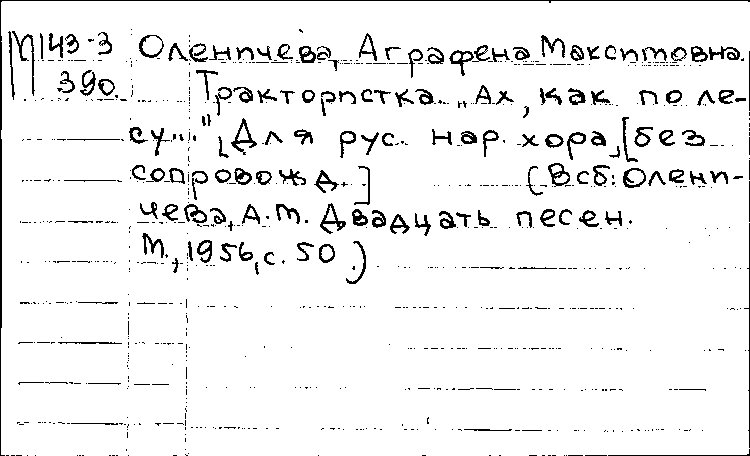 М143-3 Оленичева, Аграфена Максимовна.
390. Трактористка. „Ах, как по ле-
су..." [Для рус. нар. хора, [без
сопровожд.] (В сб: Олени-
чева, А.М. Двадцать песен.
М., 1956, с. 50.)